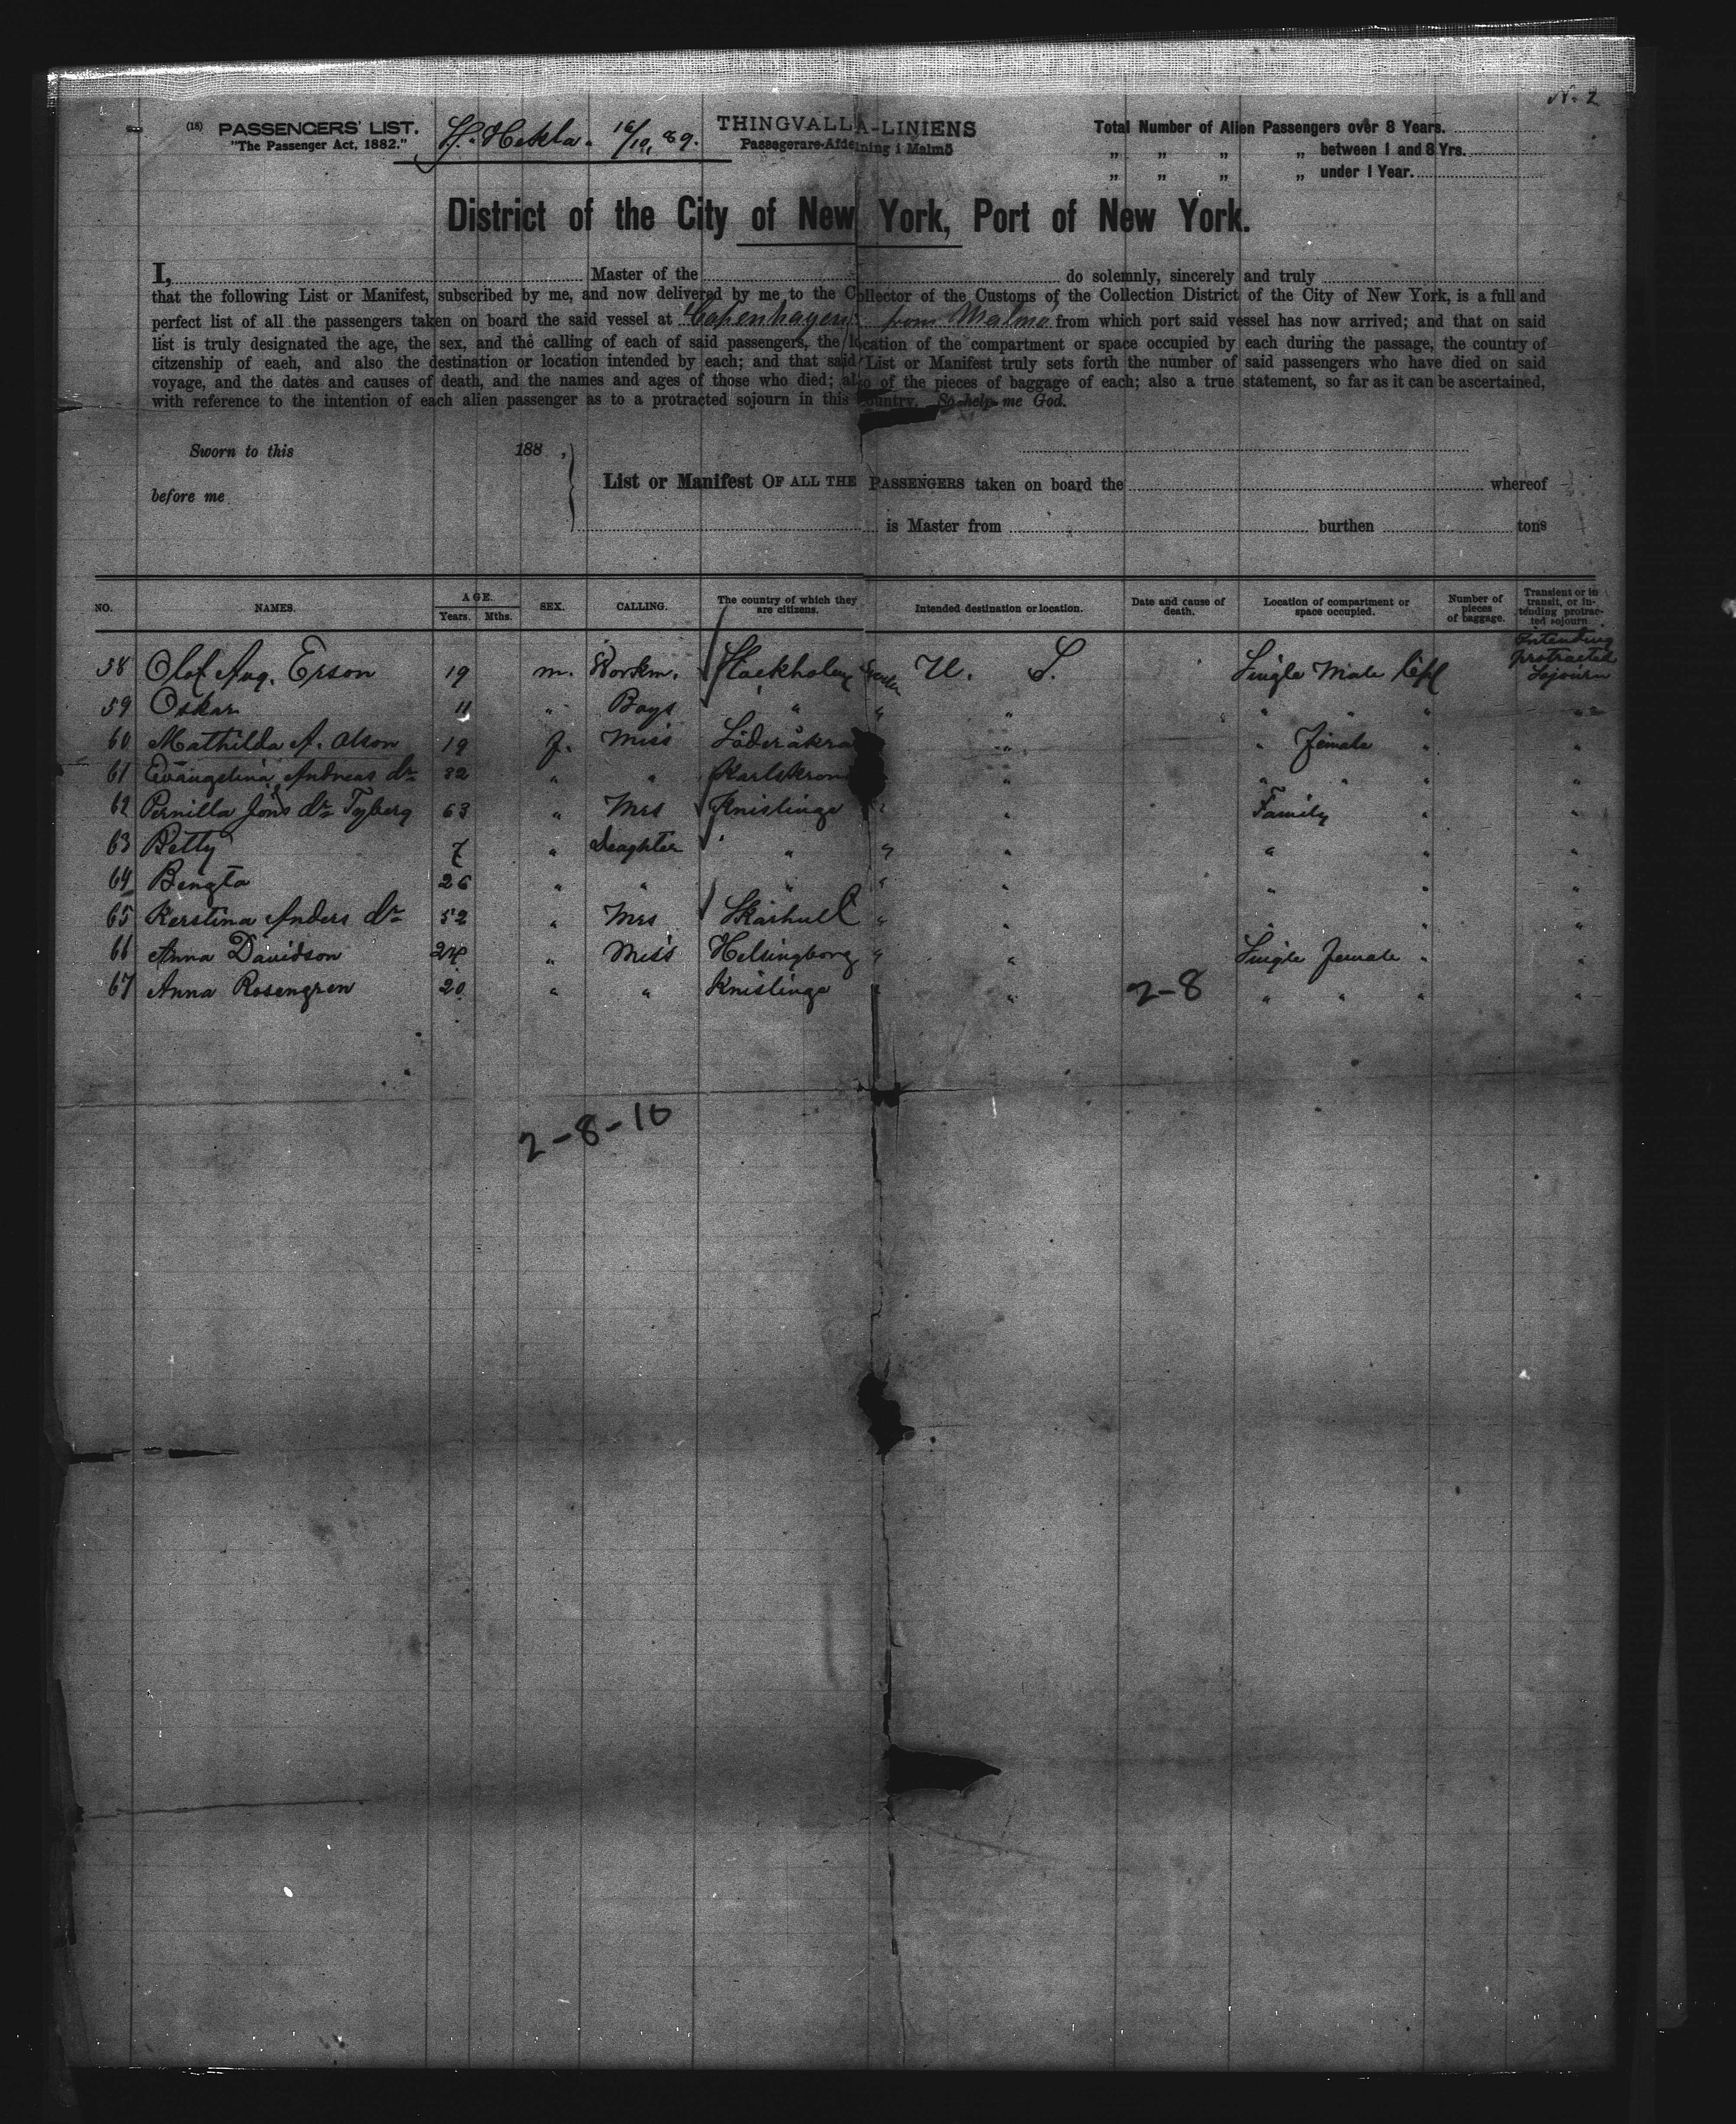 N. 2
(18) PASSENGERS' LIST. S/S. Hekla. 16/10, 89. THINGVALLA-LINIENS Total Number of Alien Passengers over 8 Years.
"The Passenger Act, 1882." Passagerare-Afdelning i Malmö „ „ „ „ between 1 and 8 Yrs.
„ „ „ „ under 1 Year.
District of the City of New York, Port of New York.
I, Master of the do solemnly, sincerely and truly
that the following List or Manifest, subscribed by me, and now delivered by me to the Collector of the Customs of the Collection District of the City of New York, is a full and
perfect list of all the passengers taken on board the said vessel at Copenhagen from Malmö from which port said vessel has now arrived; and that on said
list is truly designated the age, the sex, and the calling of each of said passengers, the location of the compartment or space occupied by each during the passage, the country of
citzenship of eaeh, and also the destination or location intended by each; and that said List or Manifest truly sets forth the number of said passengers who have died on said
voyage, and the dates and causes of death, and the names and ages of those who died; also of the pieces of baggage of each; also a true statement, so far as it can be ascertained,
with reference to the intention of each alien passenger as to a protracted sojourn in this country. So help me God.
Sworn to this 188 ,
before me
List or Manifest OF ALL THE PASSENGERS taken on board the whereof
is Master from burthen tons
NO. NAMES. AGE. Years. Mths. SEX. CALLING. The country of which they are citizens. Intended destination or location. Date and cause of death. Location of compartment or space occupied. Number of pieces of baggage. Transient or in transit, or intending protracted sojourn.
58 Olof Aug. Erson 19 m. Workm. Stockholm U. S. Single Male Intending protracted Sojourn
59 Oskar 11 " Boys " " " " " " "
60 Mathilda A. Olson 19 f. Miss Söderåkra " " Female " "
61 Evangelina Andreas dr 32 " " Karlskrona " " " " "
62 Pernilla Jöns dr Tyberg 63 " Mrs Knislinge " Family " "
63 Betty 7 " Daughter " " " " " "
64 Bengta 26 " " " " " " " "
65 Kerstina Anders dr 52 " Mrs Skårhult " " " " "
66 Anna Davidson 24 " Miss Helsingborg " " Single female " "
67 Anna Rosengren 20 " " Knislinge " " 2-8 " " " "
2-8-10